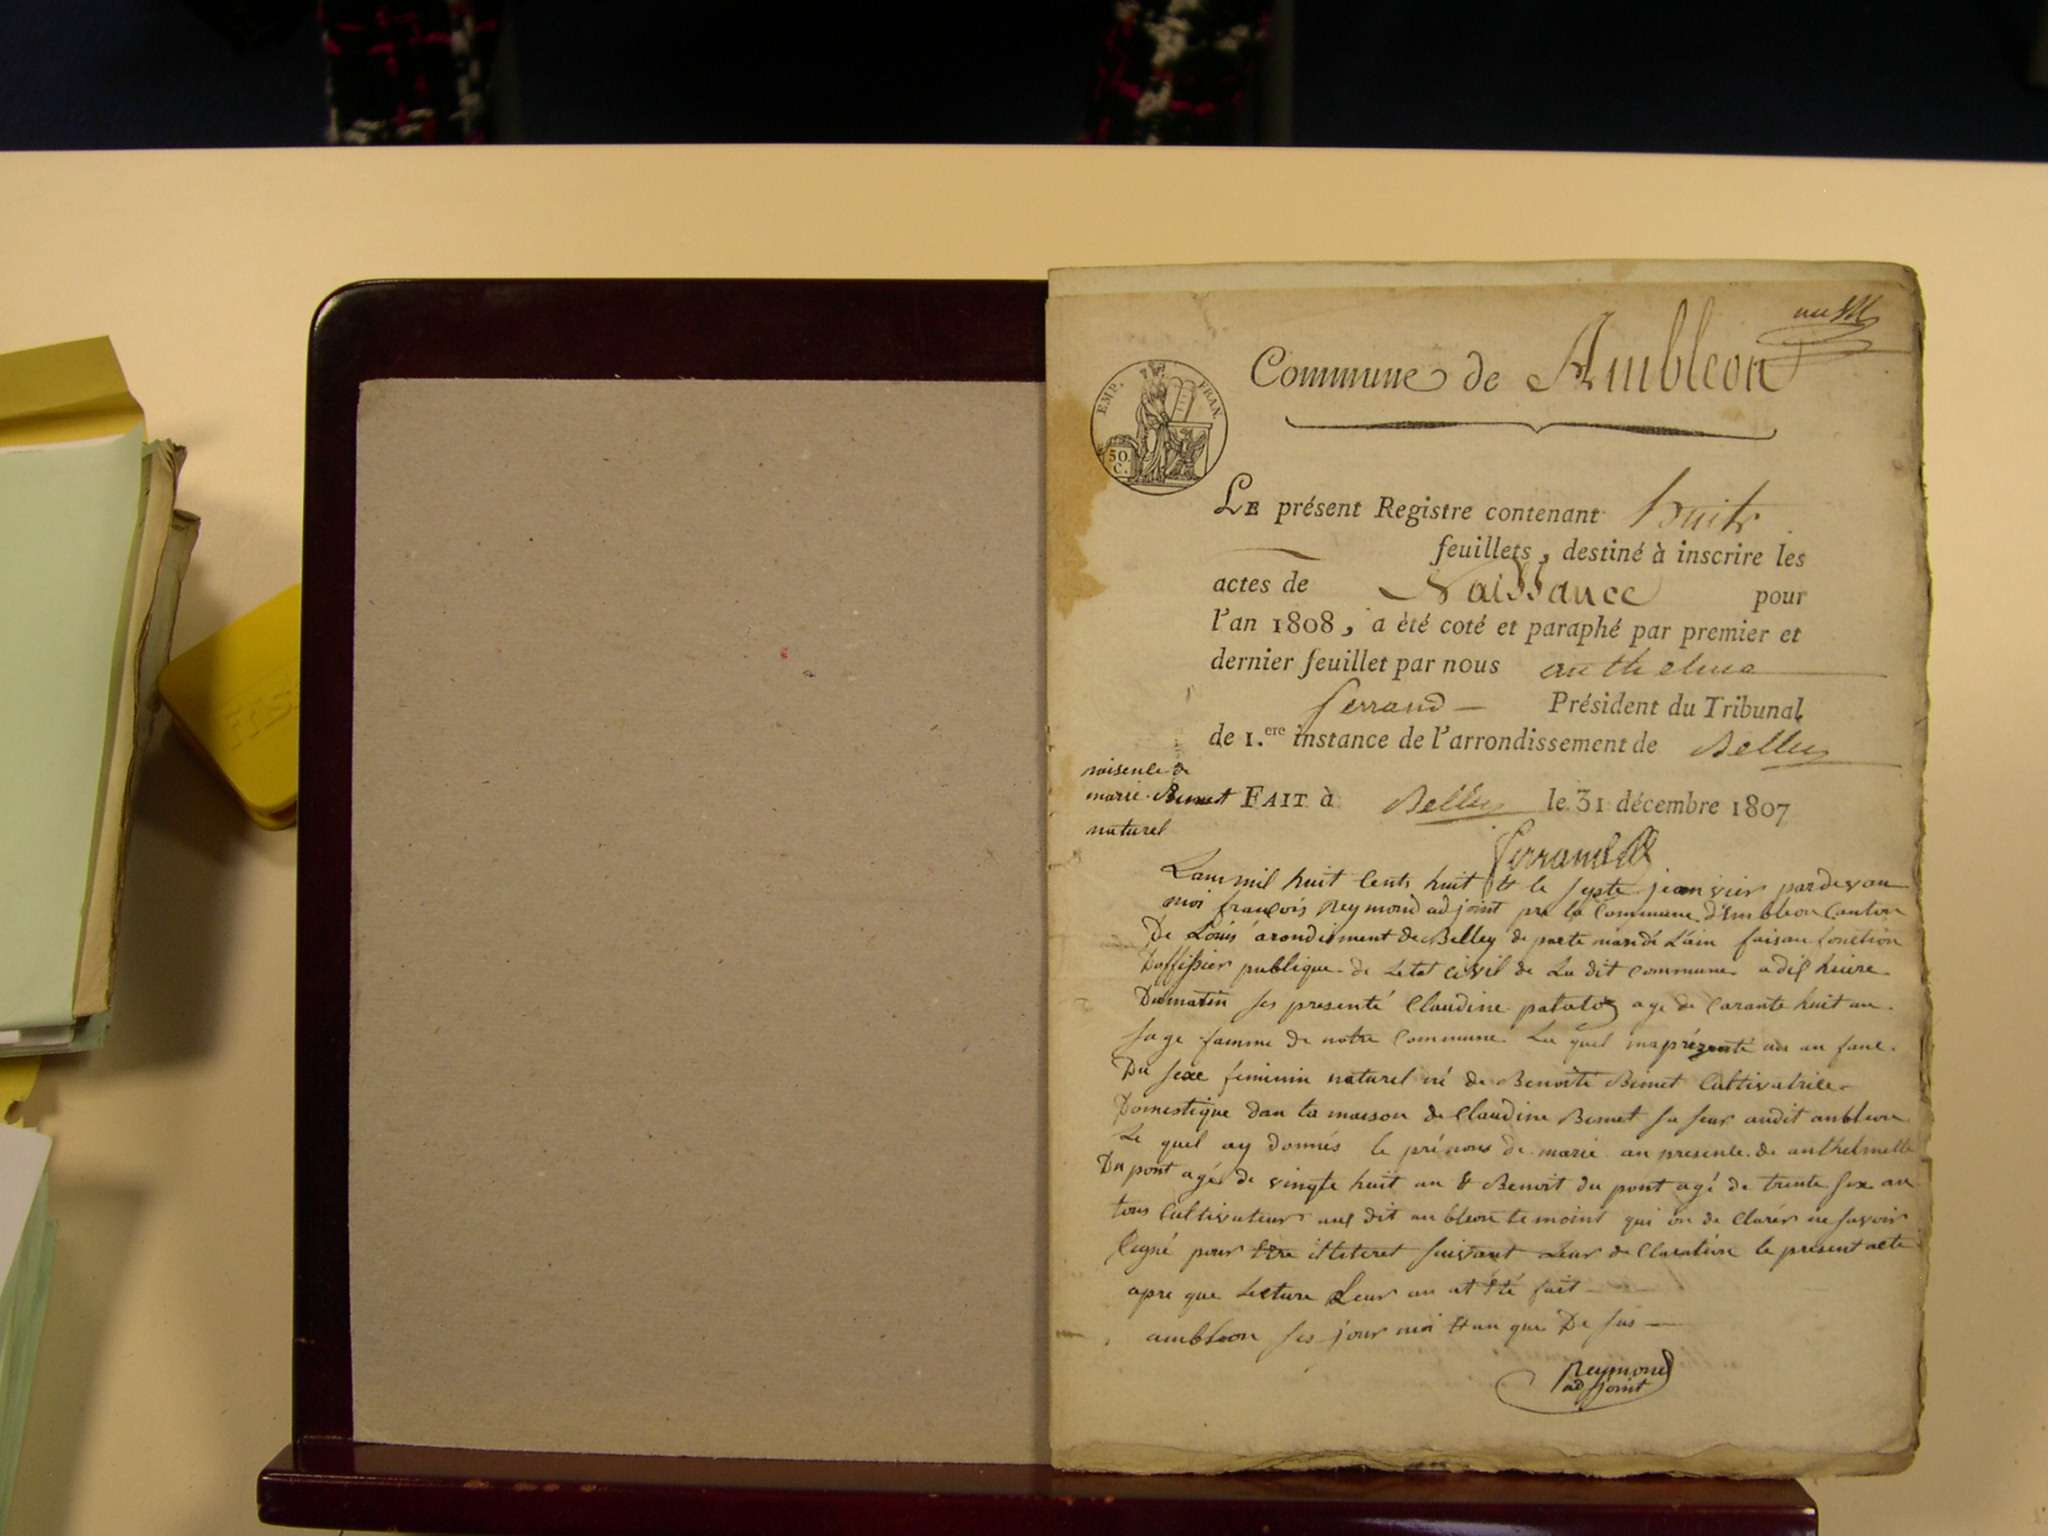 Commune de Ambleon
EMP. FRAN.
50.
C.
LE présent Registre contenant huit
feuillets, destiné à inscrire les
actes de Naissance pour
l'an 1808, a été coté et paraphé par premier et
dernier feuillet par nous anthelme
ferrand Président du Tribunal
de 1.ere instance de l'arrondissement de Belley
FAIT à Belley le 31 décembre 1807
naisence de
marie Bimet
naturel
ferrand
L'an mil huit cents huit & le janvier pardevan
moi françois Reymond adjoint pre la Commune d'Ambleon Canton
De Louis arondisment de Belley de parte mandé L'ain faisan fonction
Doffissier publique de Letat civil de La dit commune a dix heure
Du matin ses presenté Claudine age de Carante huit an
sage famme de notre Commune La quel un
Du sexe feminin naturel né de Benoite Bimet Cultivatrice
Domestique dan la maison de Claudine Bimet sa seur audit ambleon
Le quel ay donnés le prénoms de marie an presence de anthelmelle
Du pont agé de vingte huit an & Benoit du pont agé de trente six an
tous Cultivateur aux dit ambleon temoint qui on de Clarér ne savoir
signé pour etre illiteret suivant Leur de Claration le présent acte
apre que Lecture Leur an at été fait
ambleon ses jour moi & an que De sus
Reymond
adjoint